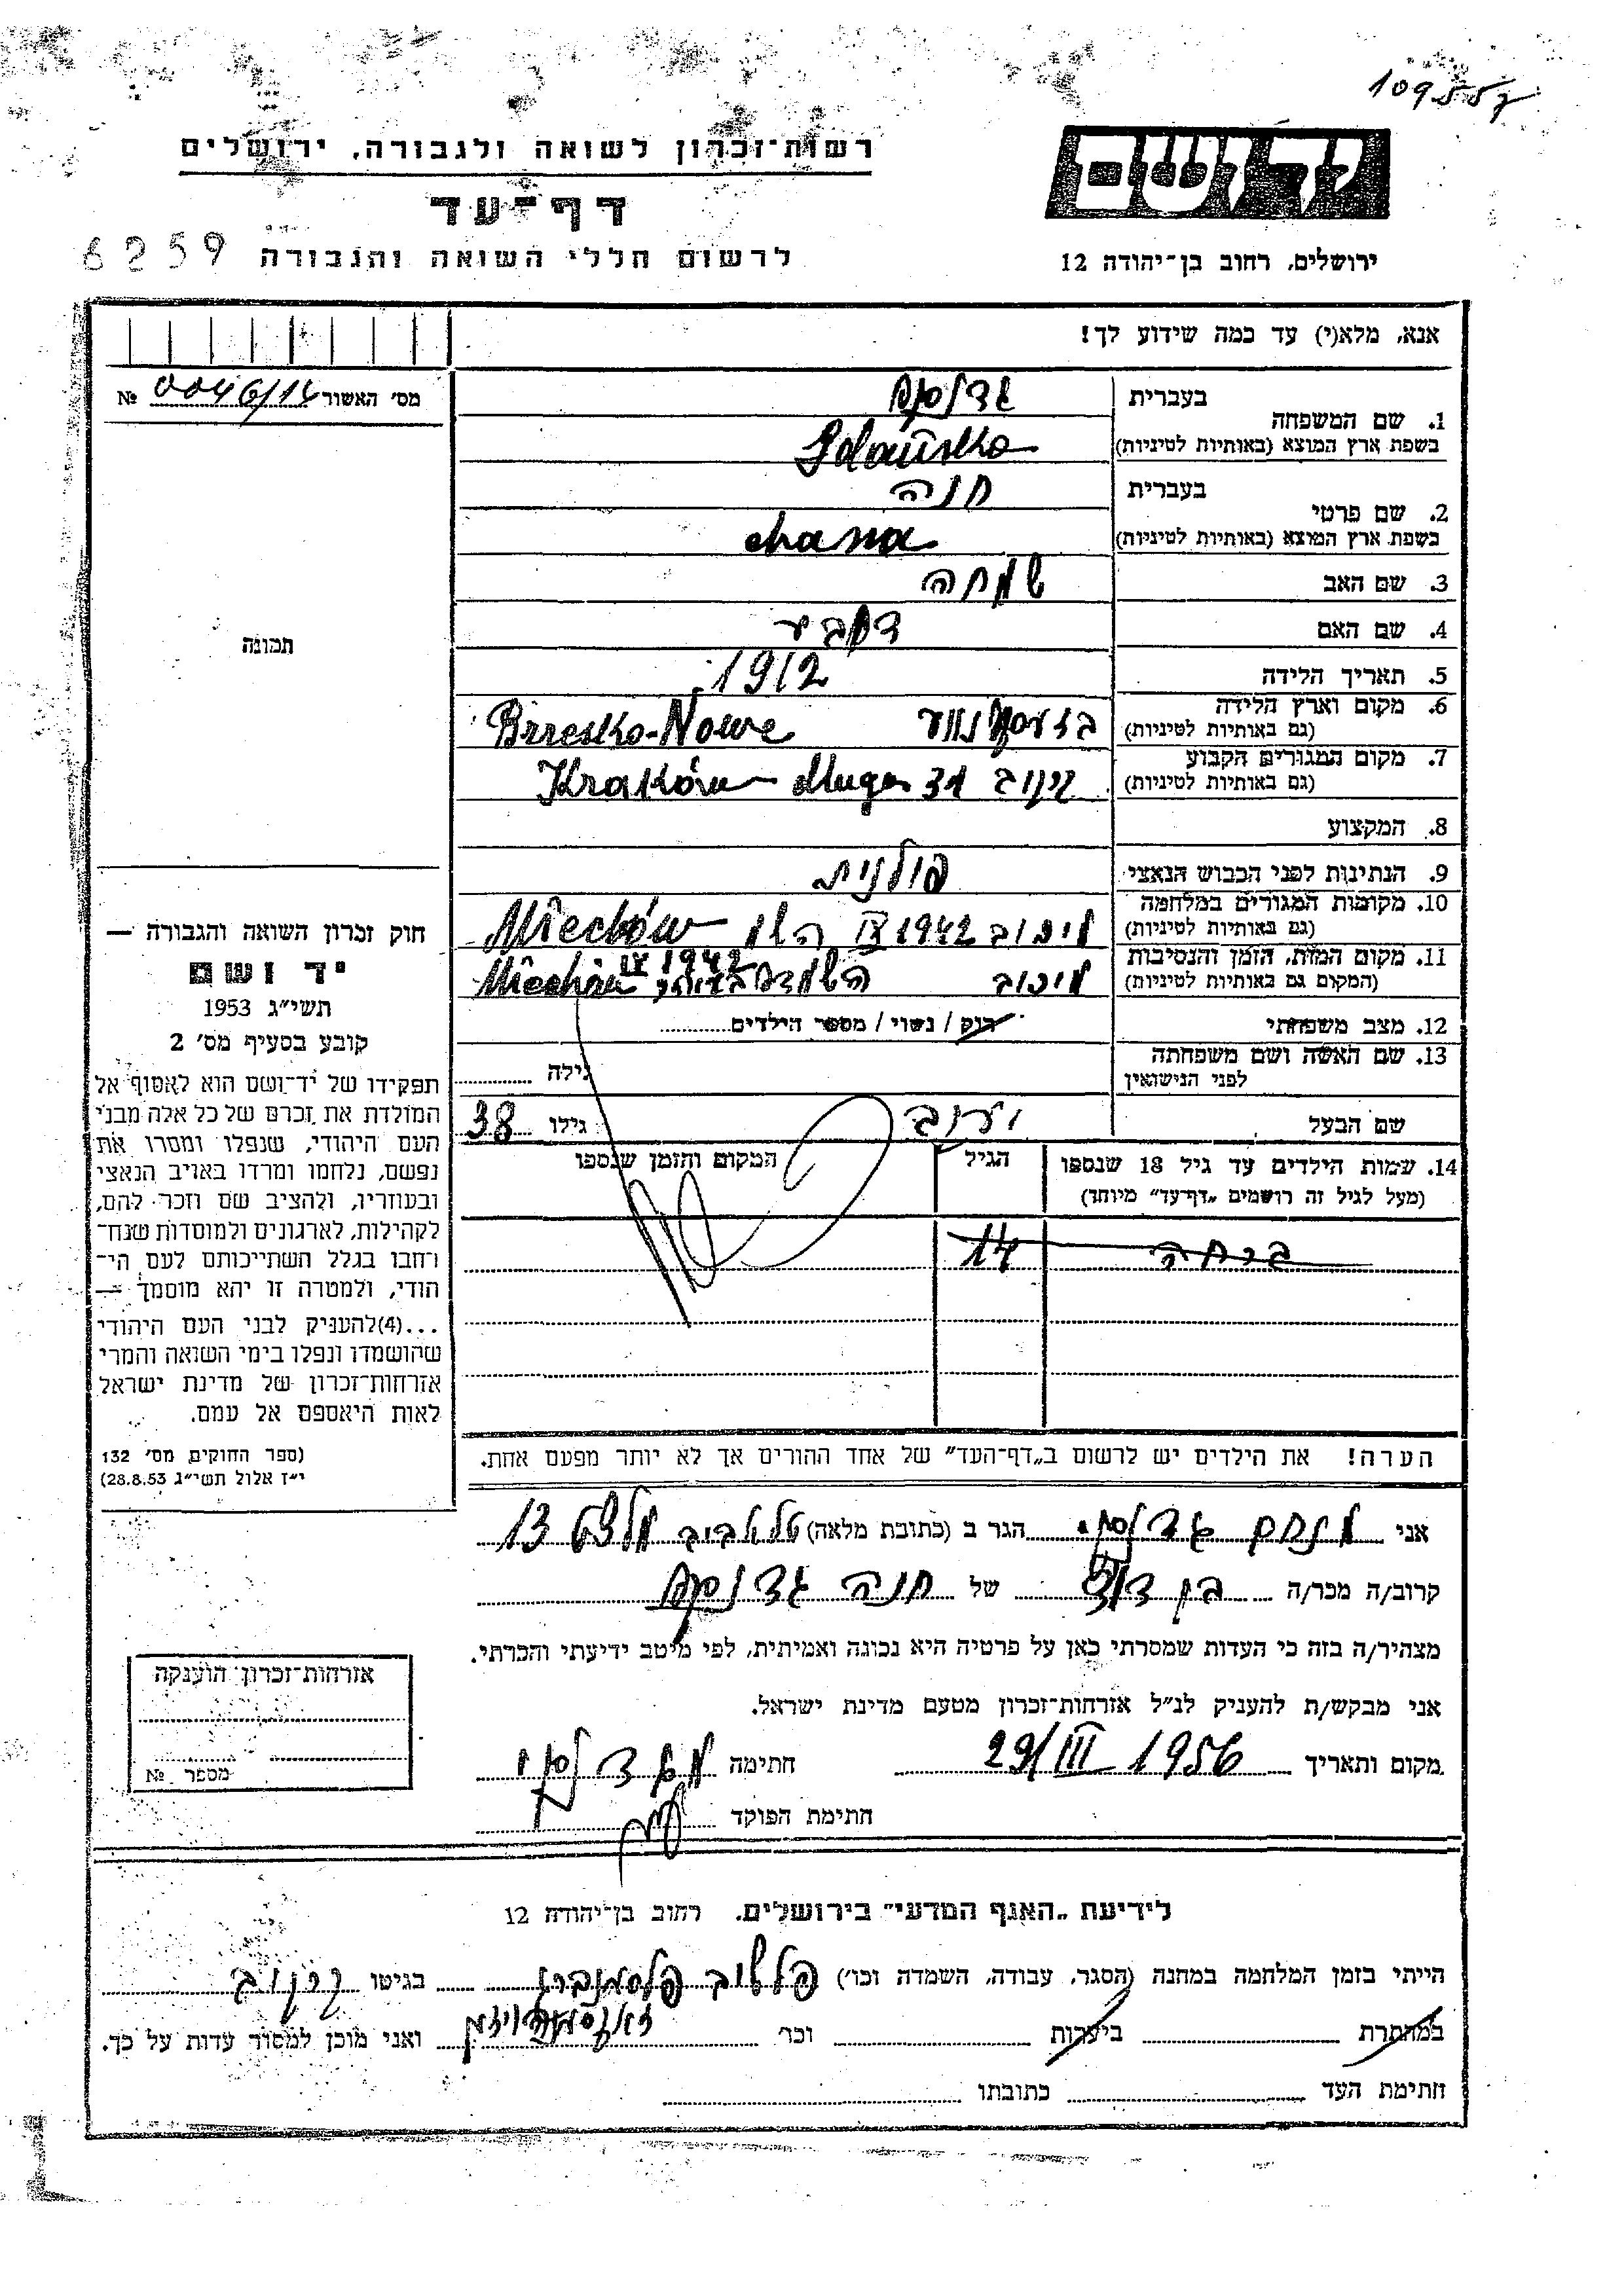 109557
רשות־זכרון לשואה ולגבורה, ירושלים
יד ושם
דף־עד
לרשום חללי השואה והגבורה 6259
ירושלים, רחוב בן־יהודה 12
אנא, מלא(י) עד כמה שידוע לך!
מס׳ האשור № 0046/14
1. שם המשפחה
בעברית
בשפת ארץ המוצא (באותיות לטיניות)
2. שם פרטי
בעברית חנה
בשפת ארץ המוצא (באותיות לטיניות) chana
3. שם האב שמחה
4. שם האם
5. תאריך הלידה 1912
6. מקום וארץ הלידה
(גם באותיות לטיניות) Brzesko-Nowe
7. מקום המגורים הקבוע
(גם באותיות לטיניות) Kraków
8. המקצוע
9. הנתינות לפני הכבוש הנאצי פולנית
10. מקומות המגורים במלחמה
(גם באותיות לטיניות) מיכוב 1942 IX Miechów
11. מקום המות, הזמן והנסיבות
(המקום גם באותיות לטיניות) מיכוב IX 1942 Miechów
12. מצב משפחתי רוק / נשוי / מספר הילדים
13. שם האשה ושם משפחתה
לפני הנישואין גילה
שם הבעל יעקב גילו 38
14. שמות הילדים עד גיל 18 שנספו הגיל המקום והזמן שנספו
(מעל לגיל זה רושמים „דף־עד” מיוחד)
14
הערה! את הילדים יש לרשום ב„דף־העד” של אחד ההורים אך לא יותר מפעם אחת.
תמונה
חוק זכרון השואה והגבורה —
יד ושם
תשי״ג 1953
קובע בסעיף מס׳ 2
תפקידו של יד־ושם הוא לאסוף אל
המולדת את זכרם של כל אלה מבני
העם היהודי, שנפלו ומסרו את
נפשם, נלחמו ומרדו באויב הנאצי
ובעוזריו, ולהציב שם וזכר להם,
לקהילות, לארגונים ולמוסדות שנח־
רחבו בגלל השתייכותם לעם הי־
הודי, ולמטרה זו יהא מוסמך —
...(4) להעניק לבני העם היהודי
שהושמדו ונפלו בימי השואה והמרי
אזרחות־זכרון של מדינת ישראל
לאות היאספם אל עמם.
(ספר החוקים, מס׳ 132
י״ז אלול תשי״ג 28.8.53)
אני מנחם הגר ב (כתובת מלאה) תל אביב 13
קרוב/ה מכר/ה בן דוד של חנה
מצהיר/ה בזה כי העדות שמסרתי כאן על פרטיה היא נכונה ואמיתית, לפי מיטב ידיעתי והכרתי.
אני מבקש/ת להעניק לנ״ל אזרחות־זכרון מטעם מדינת ישראל.
מקום ותאריך 29/III 1956 חתימה
חתימת הפוקד
אזרחות־זכרון הוענקה
מספר №
לידיעת „האגף המדעי” בירושלים, רחוב בן־יהודה 12
הייתי בזמן המלחמה במחנה (הסגר, עבודה, השמדה וכו׳) פלשוב בגיטו
במחתרת ביערות וכו׳ ואני מוכן למסור עדות על כך.
חתימת העד כתובתו